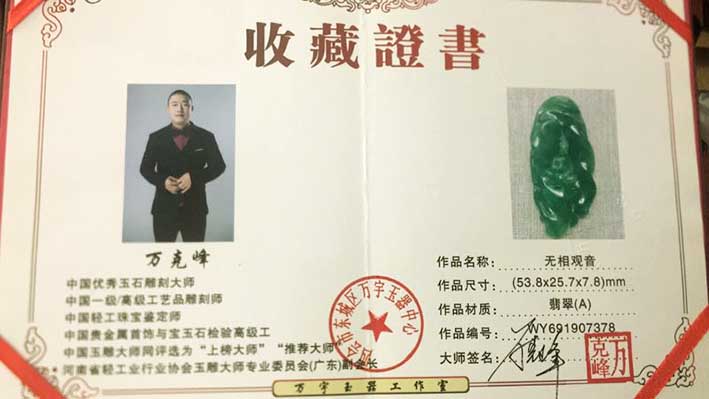 收藏證書
万克峰
中国优秀玉石雕刻大师
中国一级/高级工艺品雕刻师
中国轻工珠宝鉴定师
中国贵金属首饰与宝玉石检验高级工
中国玉雕大师网评选为“上榜大师”“推荐大师”
河南省轻工业行业协会玉雕大师专业委员会(广东)副会长
作品名称：无相观音
作品尺寸：(53.8x25.7x7.8)mm
作品材质：翡翠(A)
作品编号：WY691907378
大师签名：
万克峰
会市东城区万宇玉器中心
万宇玉器工作室